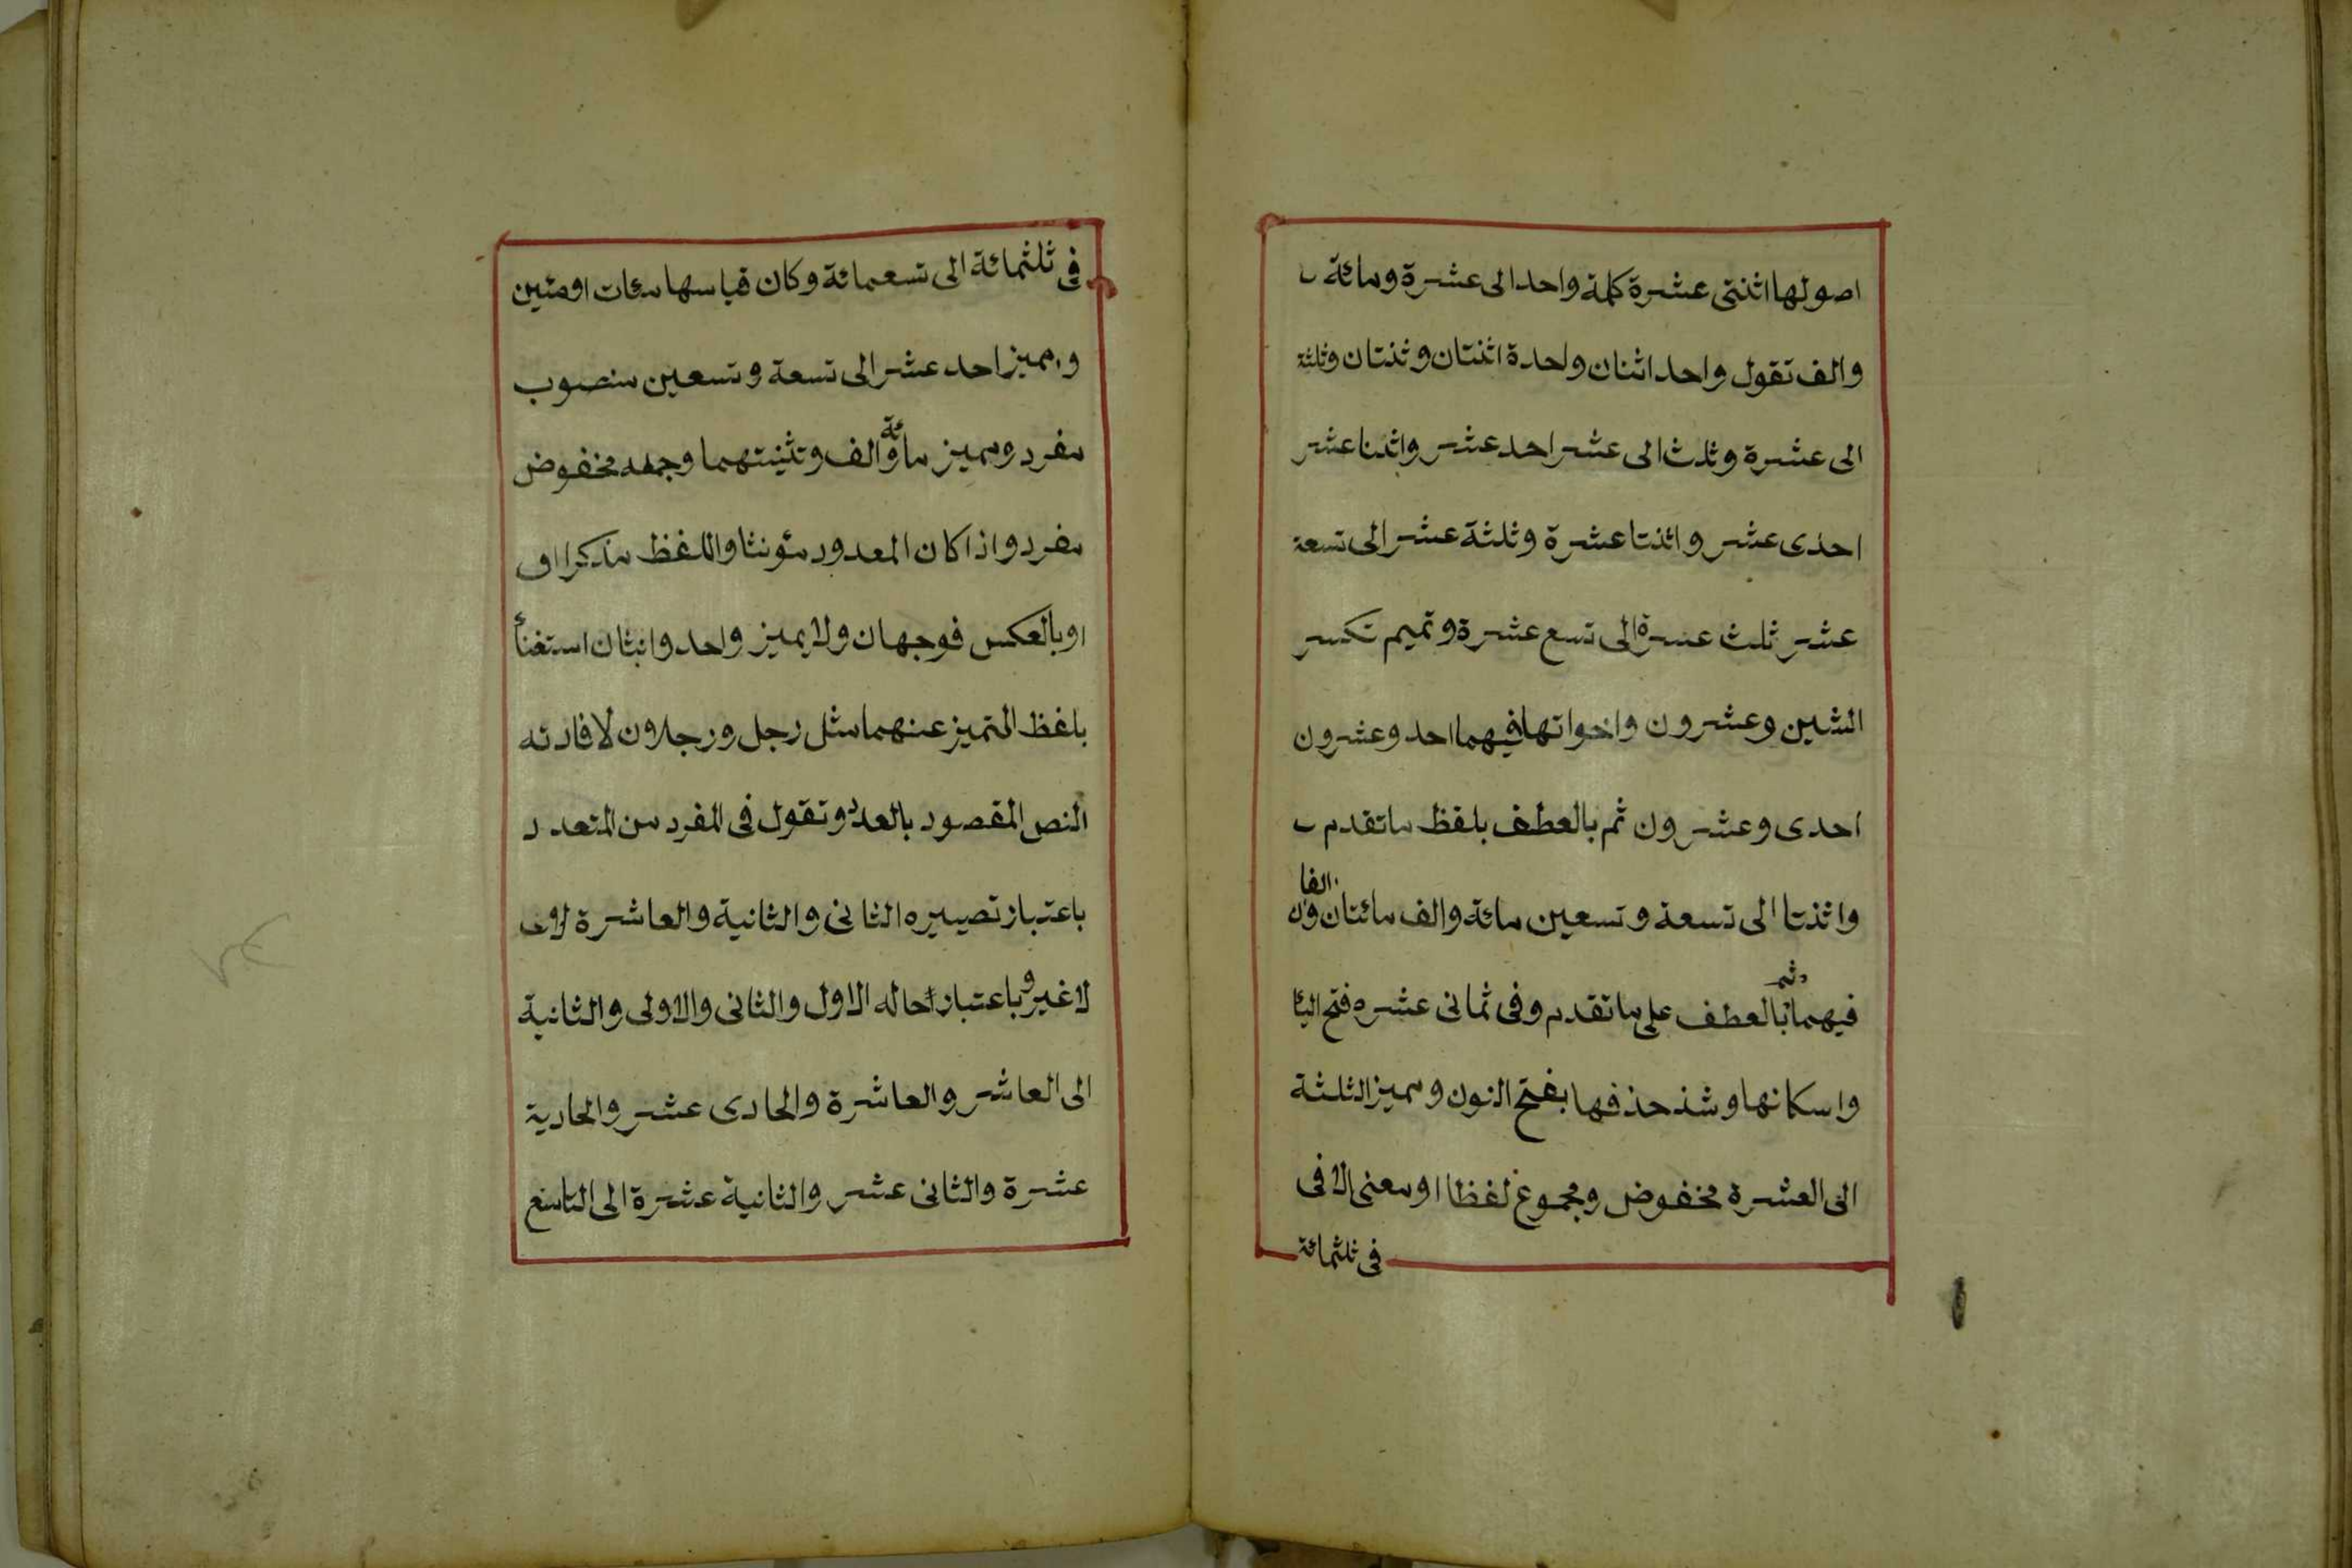 اصولها اثنتى عشرة كلمة واحد الى عشرة ومائة
والف تقول واحد اثنان واحدة اثنتان وثنتان وثلثة
الى عشرة وثلث الى عشر احد عشر واثنا عشر
احدى عشر واثنتا عشرة وثلثة عشر الى تسعة
عشر ثلث عشرة الى تسع عشرة وتميم تكسر
الشين وعشرون واخواتها فيهما احد وعشرون
احدى وعشرون ثم بالعطف بلفظ ما تقدم
واثنتا الى تسعة وتسعين مائة والف مائتان والفان
فيهما ثم بالعطف على ما تقدم وفى ثمانى عشره فتح اليا
واسكانها وشذ حذفها بفتح النون ومميز الثلثة
الى العشرة مخفوض ومجموع لفظا او معنى الا فى
فى ثلثمائة
فى ثلثمائة الى تسعمائة وكان قياسها مئات او مئين
ومميز احد عشر الى تسعة وتسعين منصوب
مفرد ومميز مائة والف وتثنيتهما وجمعه مخفوض
مفرد واذا كان المعدود مئونثا واللفظ مذكرا او
او بالعكس فوجهان ولا يميز واحد واثنان استغنأ
بلفظ التميز عنهما مثل رجل ورجلان لافادته
النص المقصود بالعدد وتقول فى المفرد من المتعدد
باعتبار تصييره الثانى والثانية والعاشرة
لا غير وباعتبار حاله الاول والثانى والاولى والثانية
الى العاشر والعاشرة والحادى عشر والحادية
عشرة والثانى عشر والثانية عشرة الى التاسع